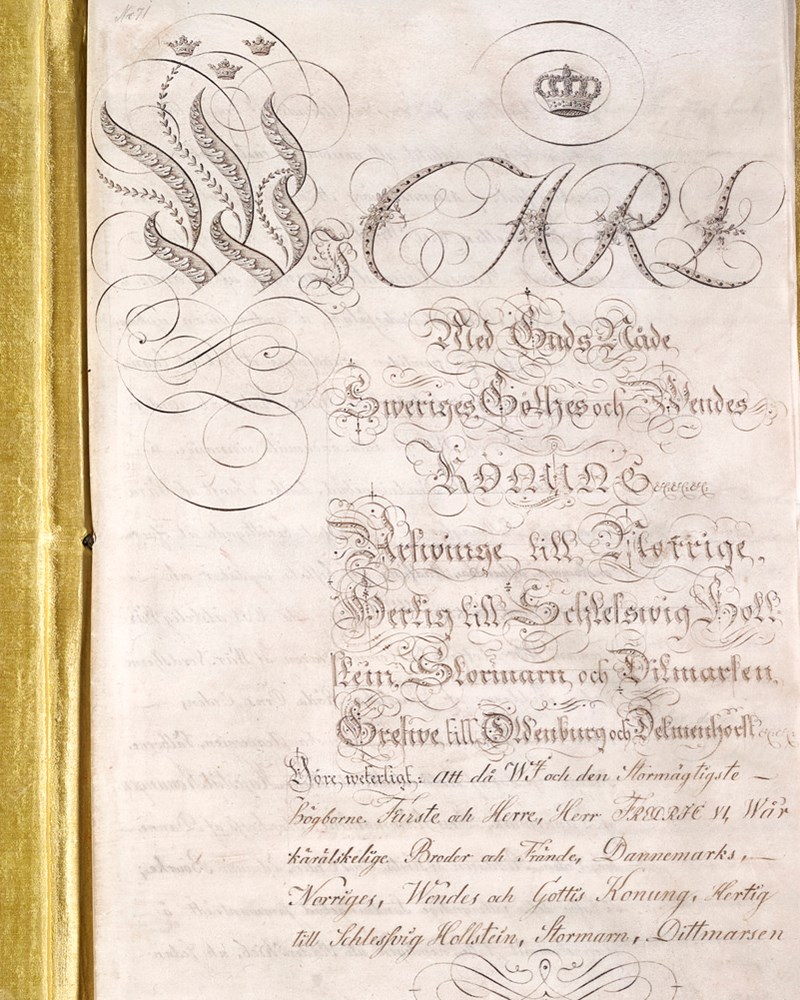 No 71.
Wi CARL
Med Guds Nåde
Sweriges Göthes och Wendes
KONUNG
Arfwinge till Norrige,
Hertig till Schleswig Holl-
stein, Stormarn och Ditmarsen,
Grefwe till Oldenburg och Delmenhorst
Göre weterligt: Att då Wi och den Stormägtigste —
högborne Furste och Herre, Herr FREDRIC VI, Wår
kärälskelige Broder och Frände, Dannemarks, —
Norriges, Wendes och Göttis Konung, Hertig
till Schleswig Hollstein, Stormarn, Dittmarsen